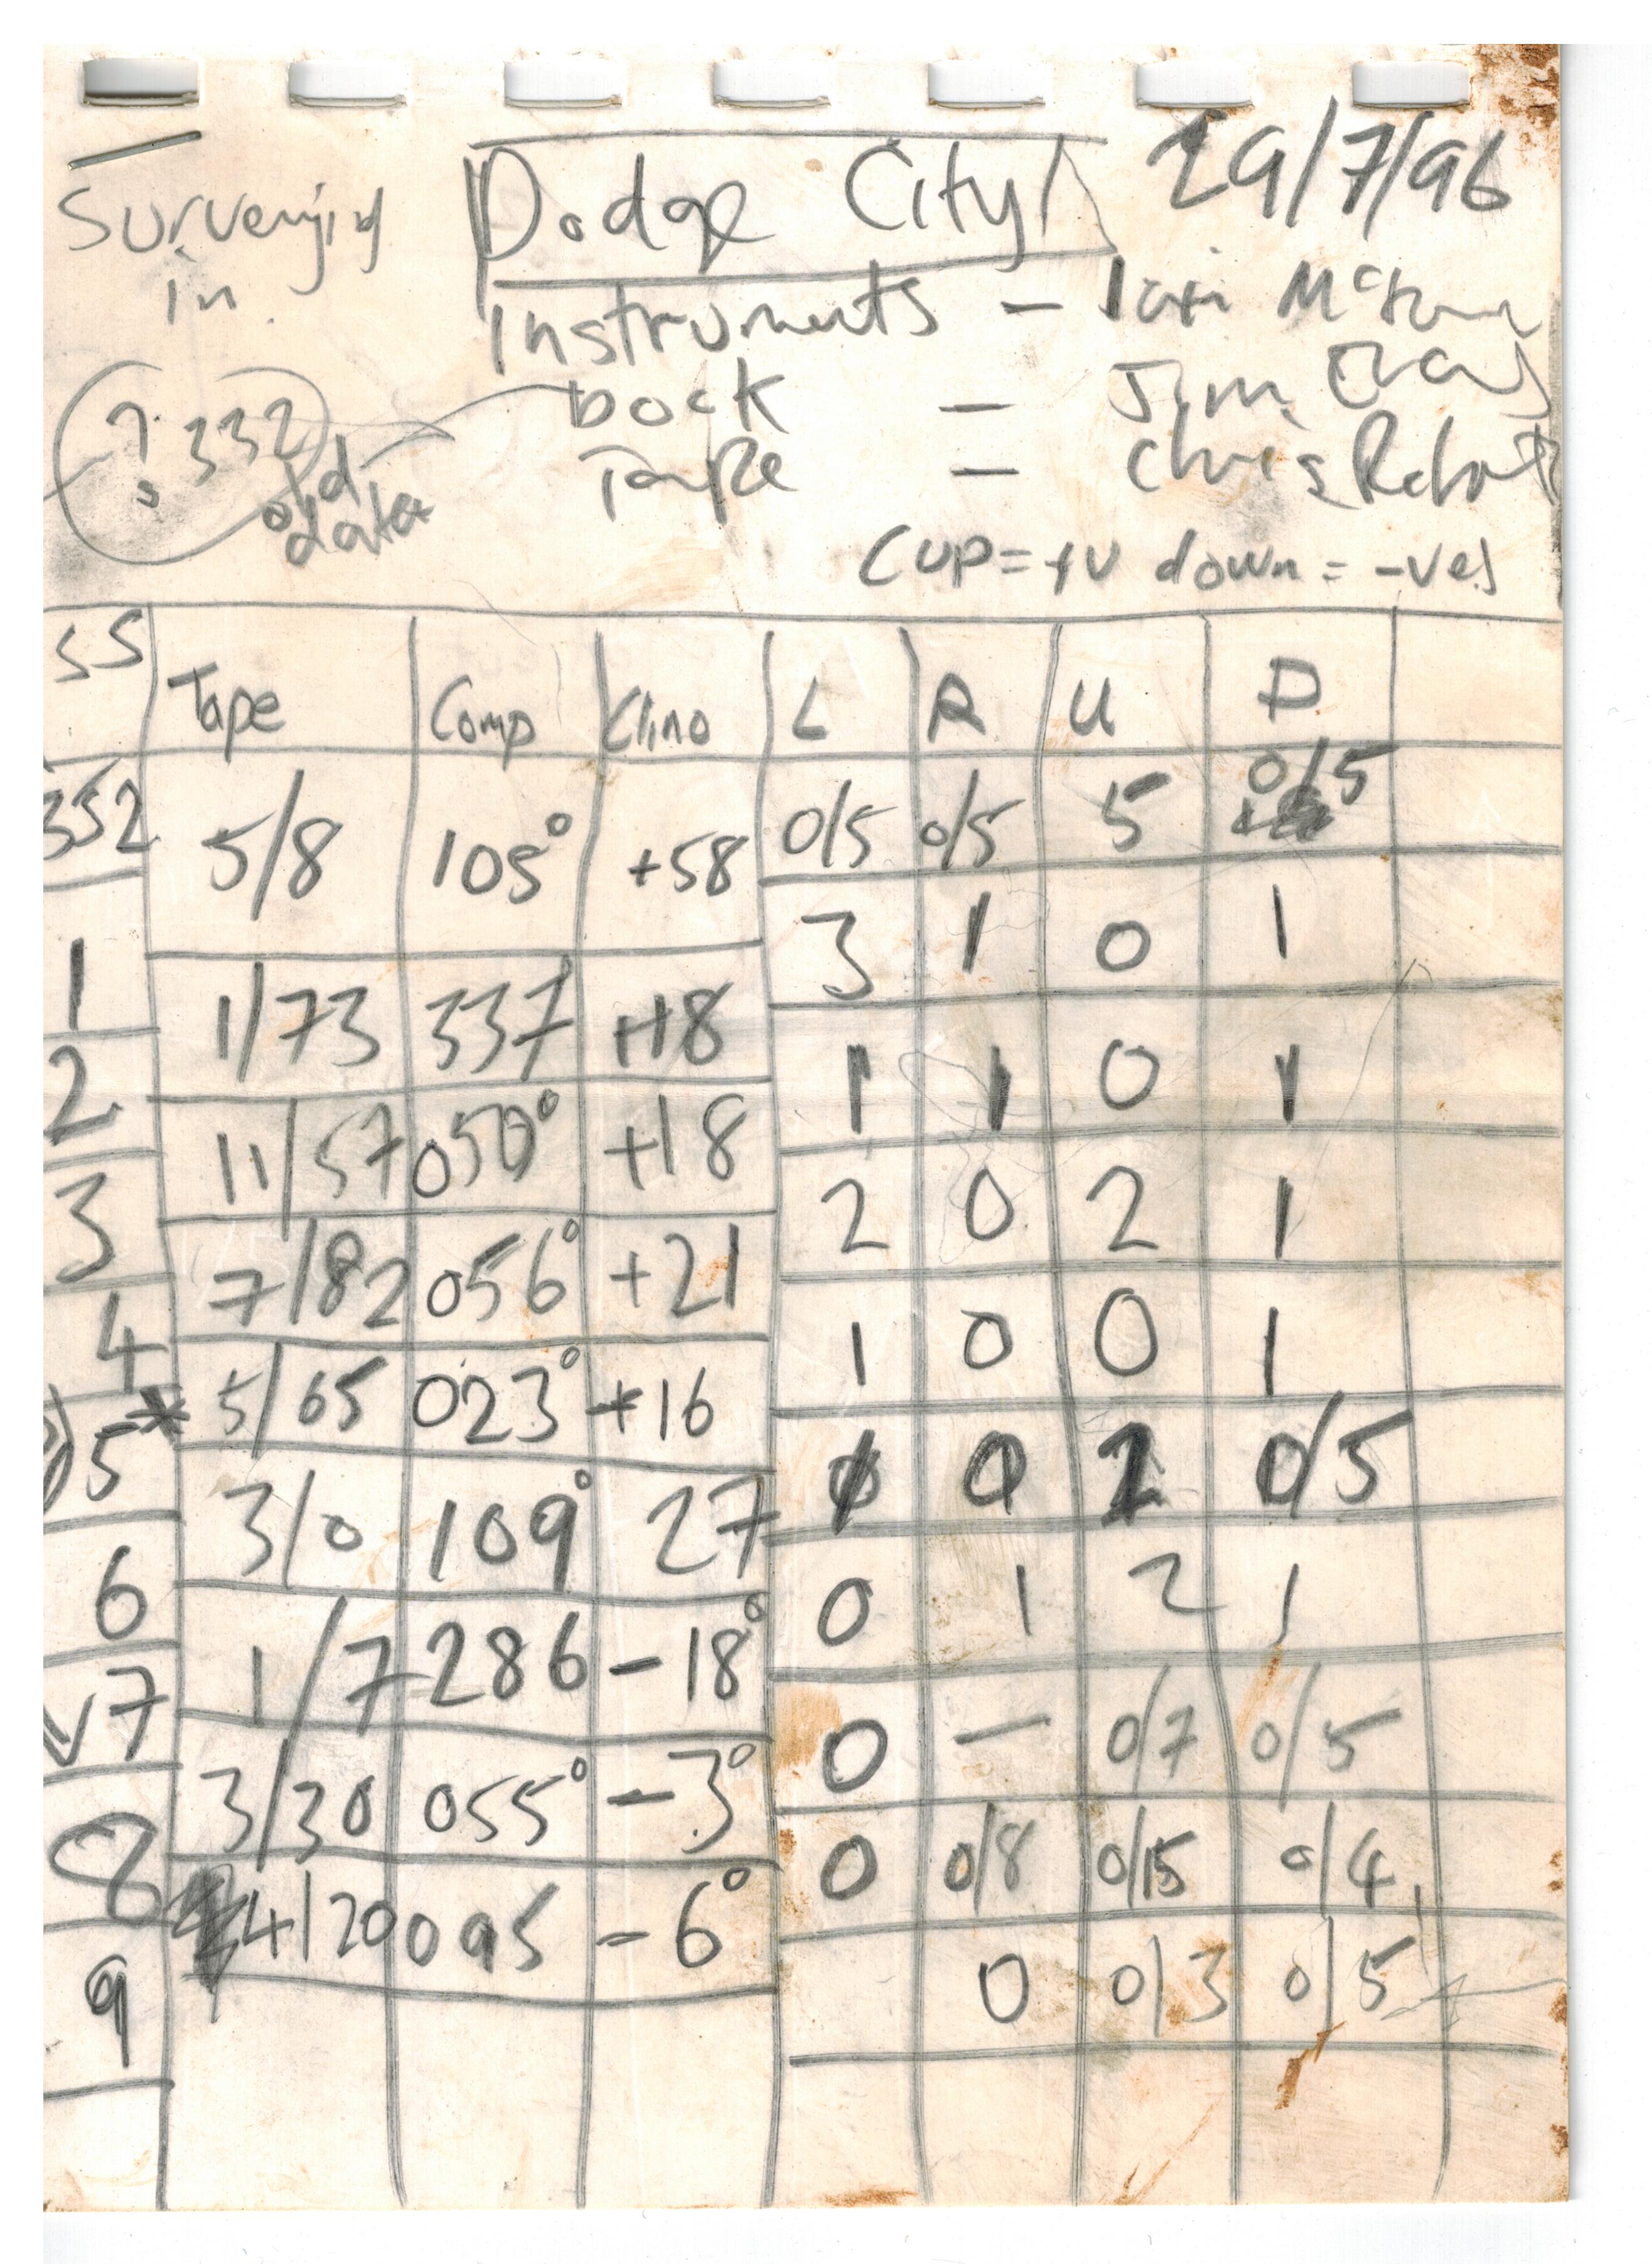 Surveying in
Dodge City!
29/7/96
Instruments - Iain
book - Jim
Tape - Chris
?. 332
old data
(up = +v down = -ve)
SS Tape Comp Clino L R U D
352 5/8 105° +58 0/5 0/5 5 0/5
1 1/73 337 +18 3 1 0 1
2 11/57 050° +18 1 1 0 1
3 7/82 056° +21 2 0 2 1
4 5/65 023° +16 1 0 0 1
5* 3/0 109° 27 0 0/5
6 1/7 286 -18° 0 1 2 1
7 3/30 055° -3° 0 - 0/7 0/5
8 4/20 095 -6° 0 0/8 0/15 0/4
9 0 0/3 0/5